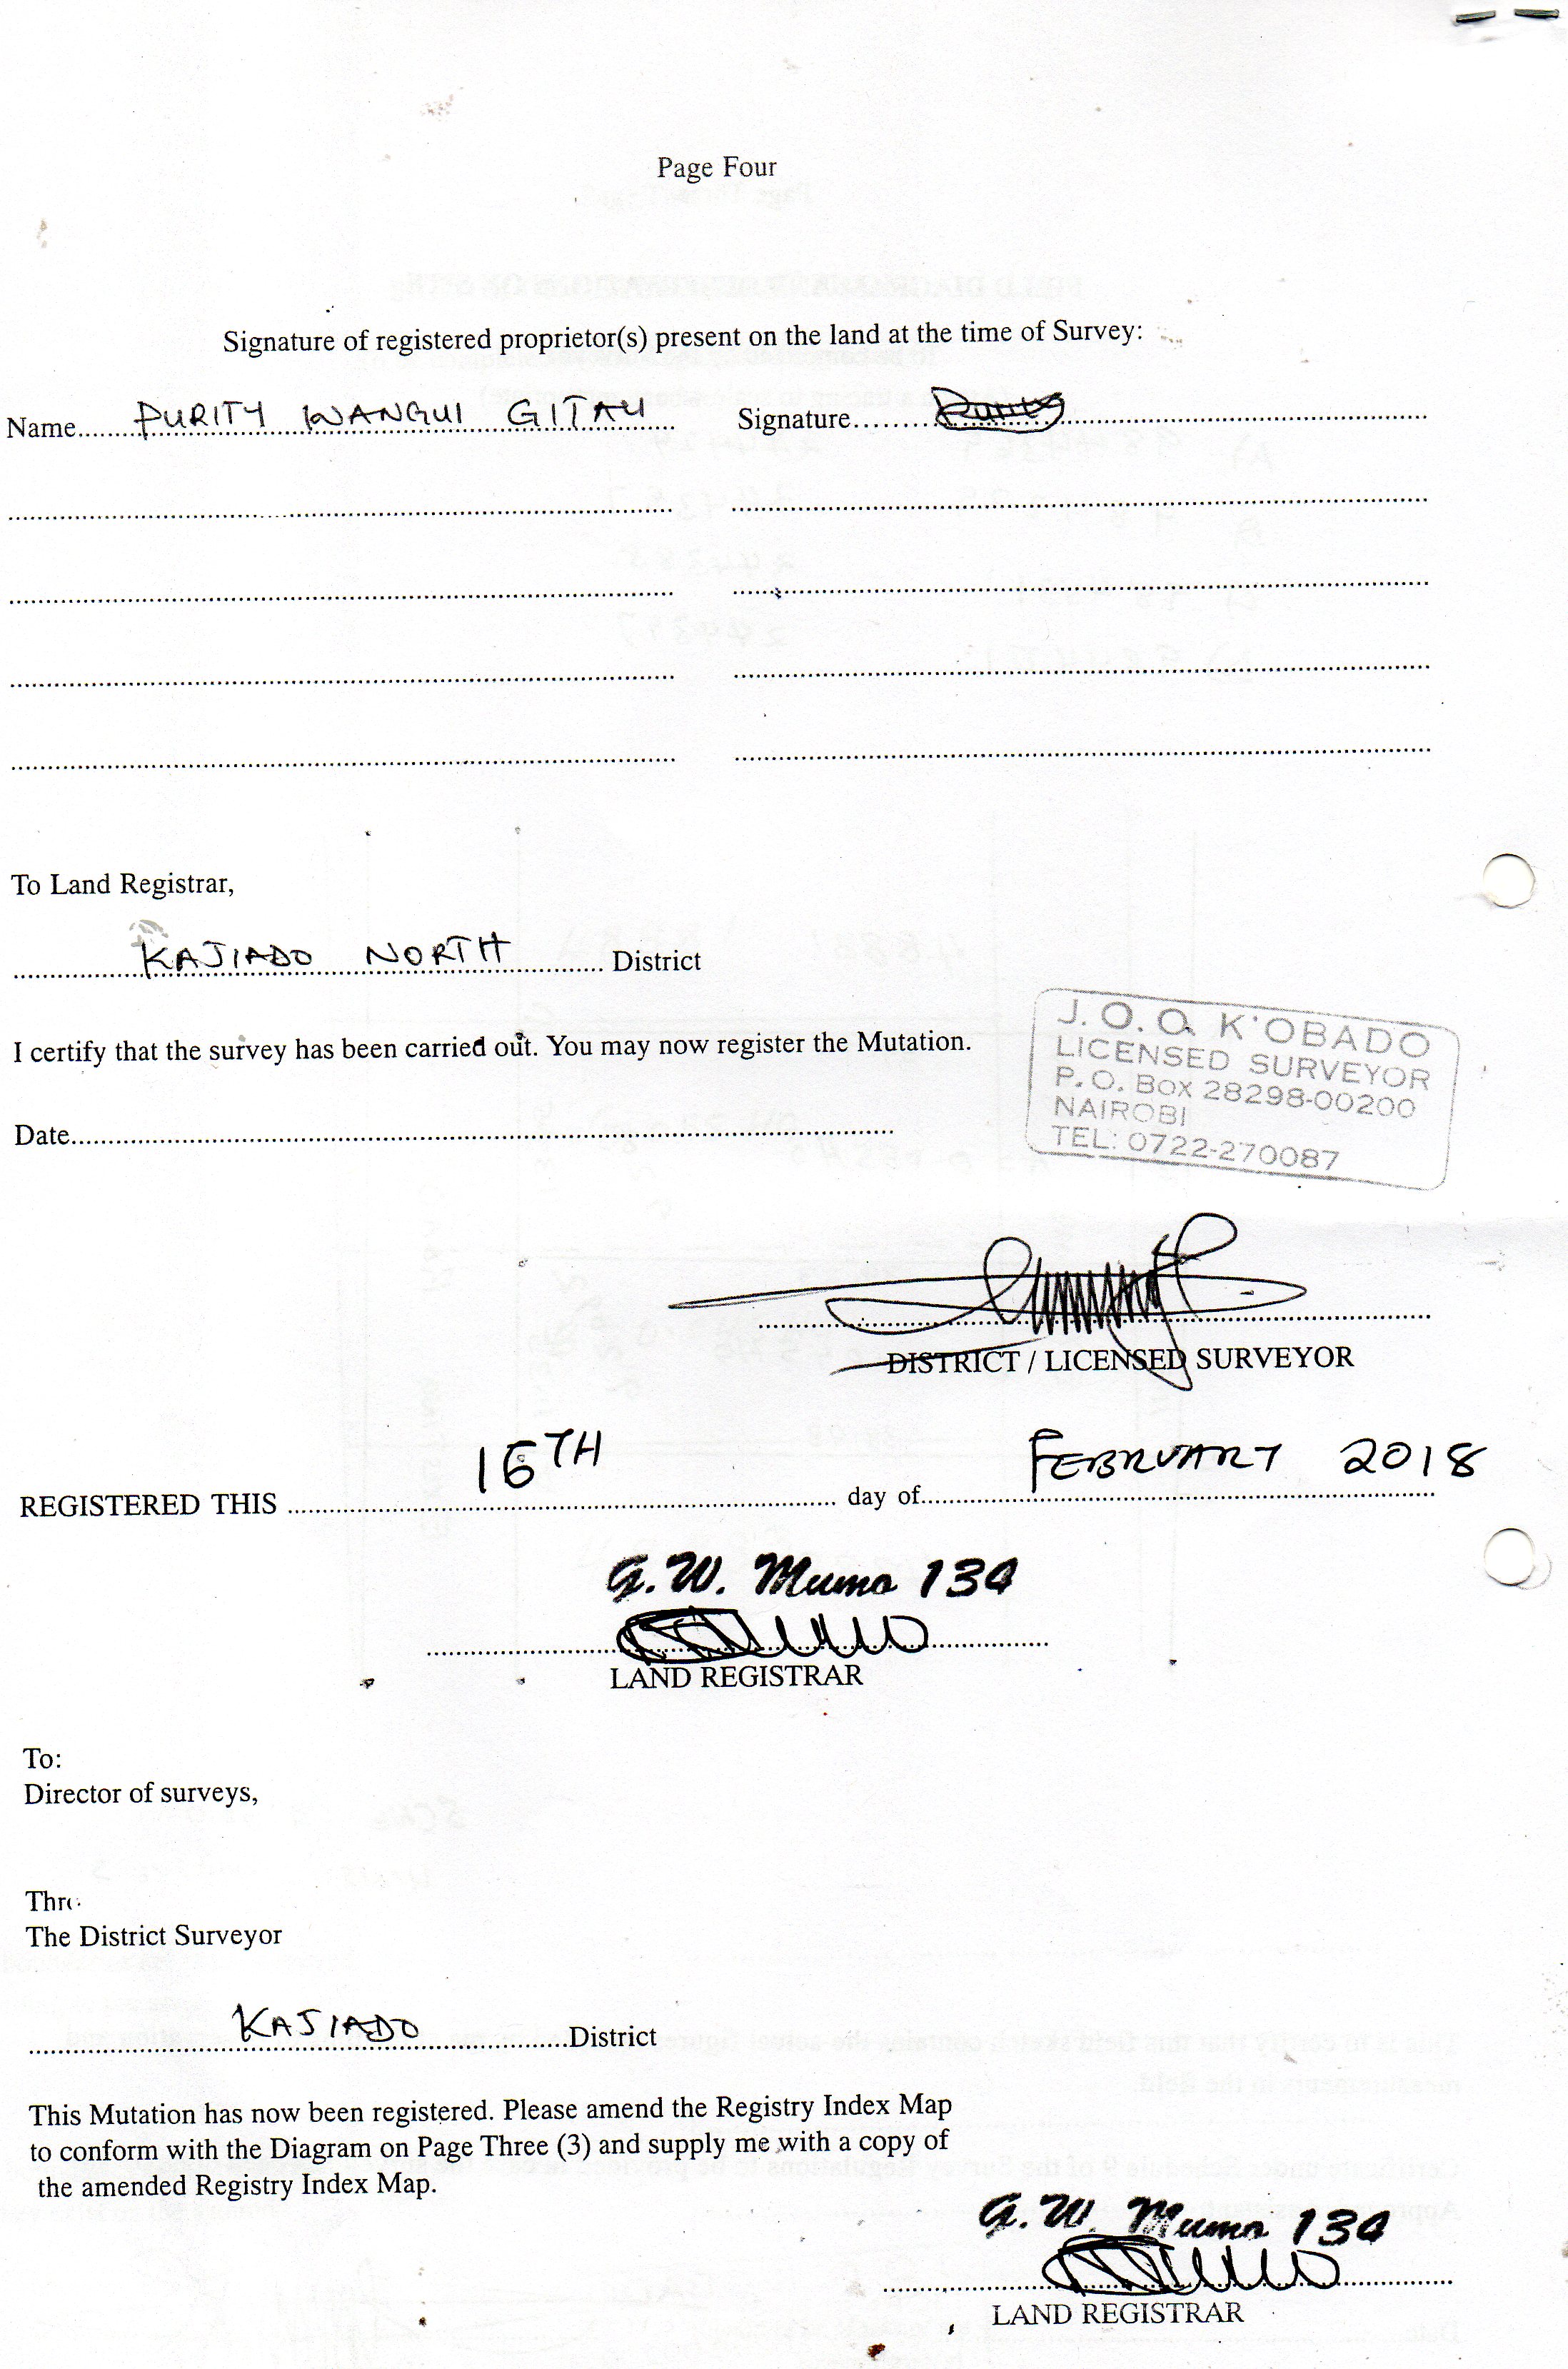 Page Four
Signature of registered proprietor(s) present on the land at the time of Survey:
Name PURITY WANGUI GITAU Signature
To Land Registrar,
KAJIADO NORTH District
I certify that the survey has been carried out. You may now register the Mutation.
J.O.O. K'OBADO
LICENSED SURVEYOR
P.O. Box 28298-00200
NAIROBI
TEL: 0722-270087
Date
DISTRICT / LICENSED SURVEYOR
REGISTERED THIS 15TH day of FEBRUARY 2018
G.W. Mumo 134
LAND REGISTRAR
To:
Director of surveys,
Thro
The District Surveyor
KAJIADO District
This Mutation has now been registered. Please amend the Registry Index Map
to conform with the Diagram on Page Three (3) and supply me with a copy of
the amended Registry Index Map.
G.W. Mumo 134
LAND REGISTRAR